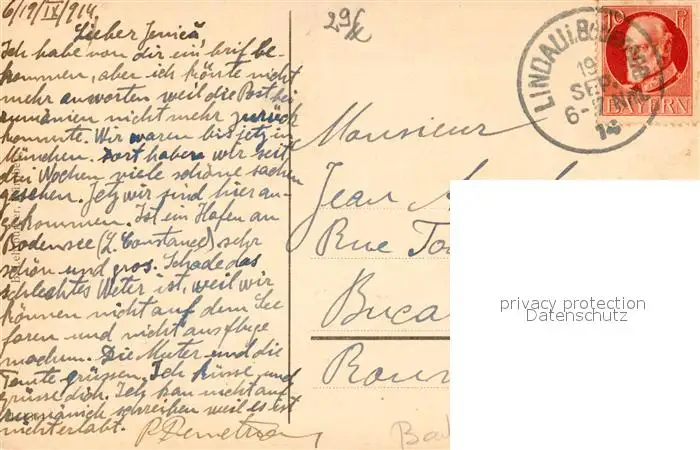 6/19/IX/914
Lieber Jenică
Ich habe von dir ein brif be-
kommen, aber ich könte nicht
mehr antworten weil die Post bei
rumänien nicht mehr zurück
kommte. Wir waren bis jetz in
München. Dort haben wir seit
drei Wochen viele schöne sachen
gesehen. Jetz wir sind hier an-
gekommen. Ist ein Hafen an
Bodensee (L. Constance) sehr
schön und gros. Schade das
schlechtes Weter ist, weil wir
können nicht auf dem See
faren und nicht ausflüge
machen. Die Muter und die
Tante grüssen. Ich küsse und
grüsse dich. Ich kan nicht auf
rumänisch schreiben weil es ist
nicht erlabt.
29
LINDAU i. B.
19
SEP.
6-7 N
14
10 Pf
BAYERN
Monsieur
Jean
Rue
Buca
Roum
Bad
privacy protection
Datenschutz